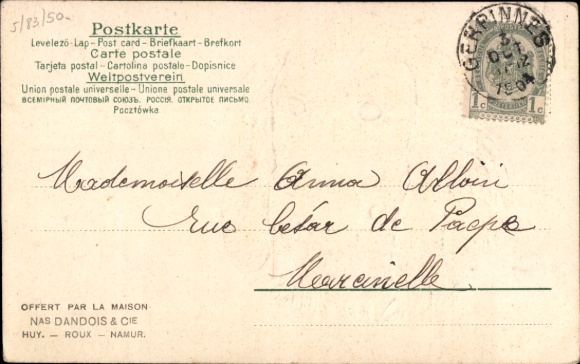 5/83/50-
Postkarte
Levelezö-Lap - Post card - Briefkaart - Brefkort
Carte postale
Tarjeta postal - Cartolina postale - Dopisnice
Weltpostverein
Union postale universelle - Unione postale universale
ВСЕМІРНЫЙ ПОЧТОВЫЙ СОЮЗЪ. РОССІЯ. ОТКРЫТОЕ ПИСЬМО
Pocztówka
GERPINNES
OCT
1904
1c 1c
Mademoiselle Anna Alloin
Rue César de Paepe
Marcinelle
OFFERT PAR LA MAISON
NAS DANDOIS & CIE
HUY. — ROUX — NAMUR.